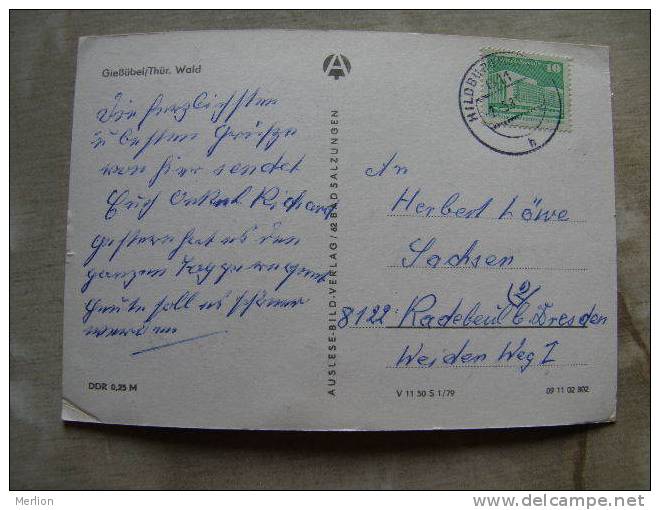 Gießübel/Thür. Wald
Die herzlichsten
u besten Grüße
von hier sendet
Euch Onkel Richard
gestern hat es den
ganzen Tag geregnet
heute soll es schöner
werden
DDR 0,25 M
AUSLESE-BILD-VERLAG / 62 BAD SALZUNGEN
HILDBUR
10
h
An
Herbert Löwe
Sachsen
8122 Radebeul 2 b Dresden
Weiden Weg I
V 11 50 S 1/79
09 11 02 302
Merlion
www.delcampe.net